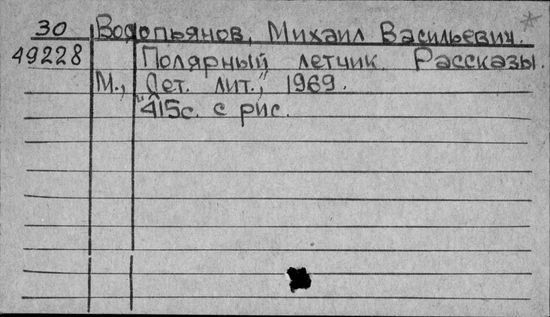 30 Водопьянов, Михаил Васильевич.
49228 Полярный летчик. Рассказы.
М., "Дет. лит.", 1969.
415с. с рис.